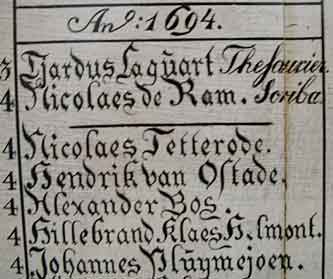 Anº: 1694.
3 Tjardus Laquart Thesaurier.
4 Nicolaes de Ram. Scriba.
4 Nicolaes Tetterode.
4 Hendrik van Ostade.
4 Alexander Bos.
4 Hillebrand Klaesz H lmont.
4 Johannes Pluymejoen.